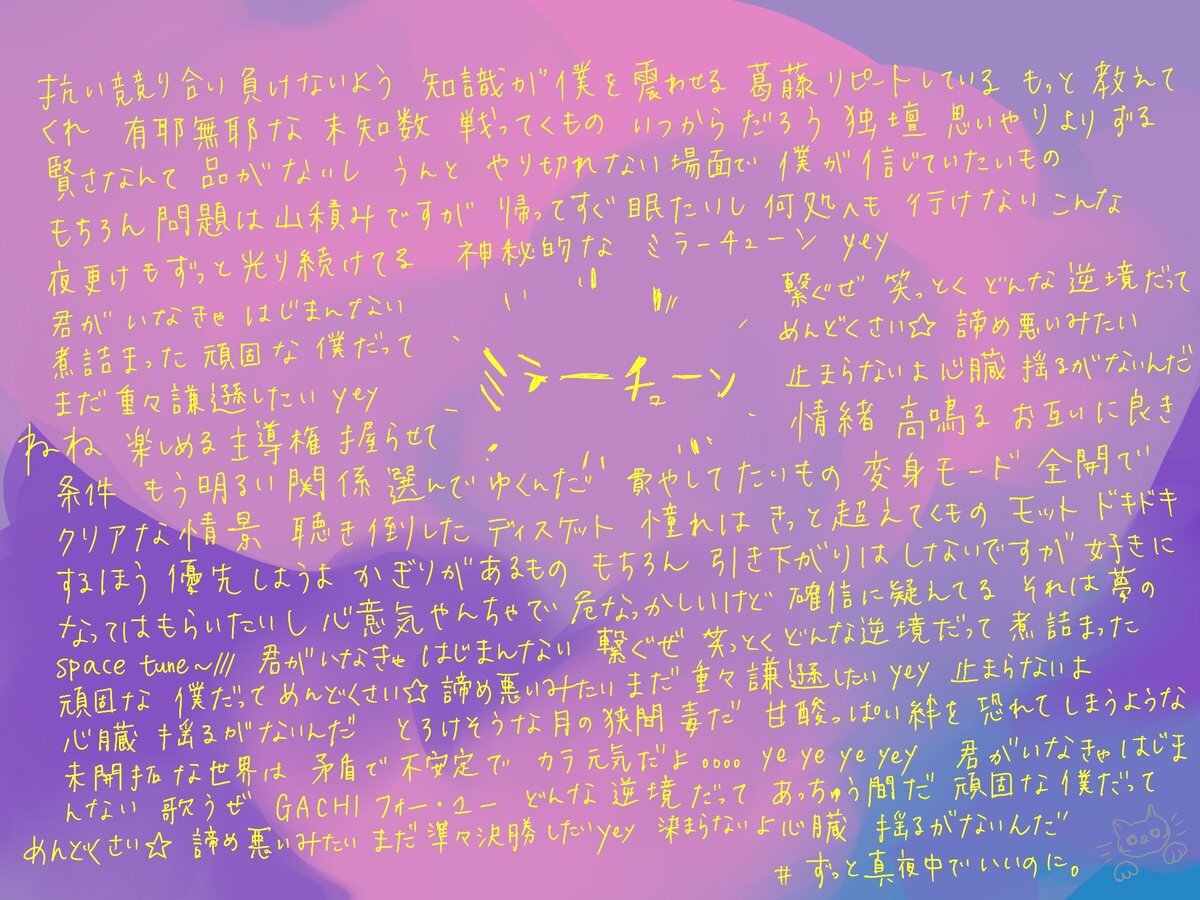 抗い競り合い負けないよう 知識が僕を震わせる 葛藤リピートしている もっと教えて
くれ 有耶無耶な未知数 戦ってくもの いつからだろう 独壇 思いやりよりずる
賢さなんて品がないし うんと やり切れない場面で 僕が信じていたいもの
もちろん問題は山積みですが 帰ってすぐ眠たいし 何処へも 行けない こんな
夜更けもずっと光り続けてる 神秘的な ミラーチューン yey
君がいなきゃはじまんない
煮詰まった頑固な僕だって
まだ重々謙遜したい yey
ミラーチューン
繋ぐぜ 笑っとく どんな逆境だって
めんどくさい☆ 諦め悪いみたい
止まらないよ心臓 揺るがないんだ
情緒 高鳴る お互いに良き
ねね 楽しめる主導権 握らせて
条件 もう明るい関係 選んでゆくんだ 費やしてたいもの 変身モード 全開で
クリアな情景 聴き倒したディスケット 憧れはきっと超えてくもの モット ドキドキ
するほう優先しようよ かぎりがあるもの もちろん 引き下がりはしないですが 好きに
なってはもらいたいし 心意気やんちゃで 危なっかしいけど 確信に疑えてる それは夢の
space tune~/// 君がいなきゃはじまんない 繋ぐぜ 笑っとく どんな逆境だって 煮詰まった
頑固な 僕だって めんどくさい☆ 諦め悪いみたい まだ重々謙遜したい yey 止まらないよ
心臓 揺るがないんだ とろけそうな月の狭間 毒だ 甘酸っぱい絆を 恐れてしまうような
未開拓な世界は 矛盾で不安定で カラ元気だよ。。。。 ye ye ye yey 君がいなきゃはじま
んない 歌うぜ GACHI フォー・ユー どんな逆境だって あっちゅう間だ 頑固な僕だって
めんどくさい☆ 諦め悪いみたい まだ準々決勝したい yey 染まらないよ心臓 揺るがないんだ
#ずっと真夜中でいいのに。